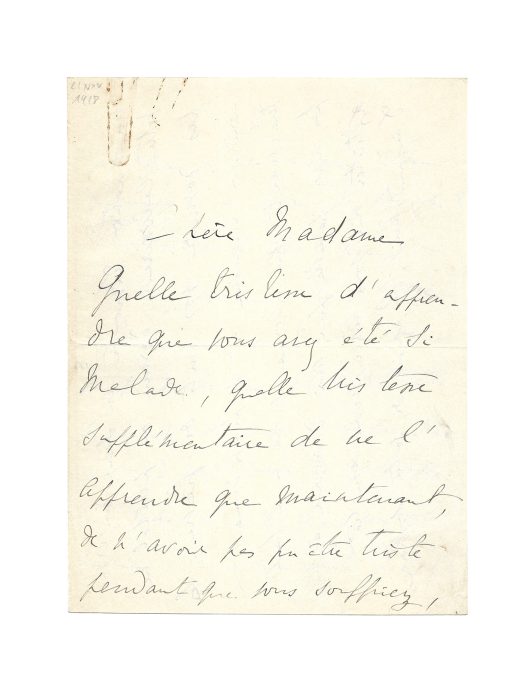 21 Nov
1918
Chère Madame
Quelle tristesse d'appren-
dre que vous avez été si
Malade, quelle tristesse
supplémentaire de ne l'
apprendre que maintenant,
de n'avoir pas pu être triste
pendant que vous souffriez,